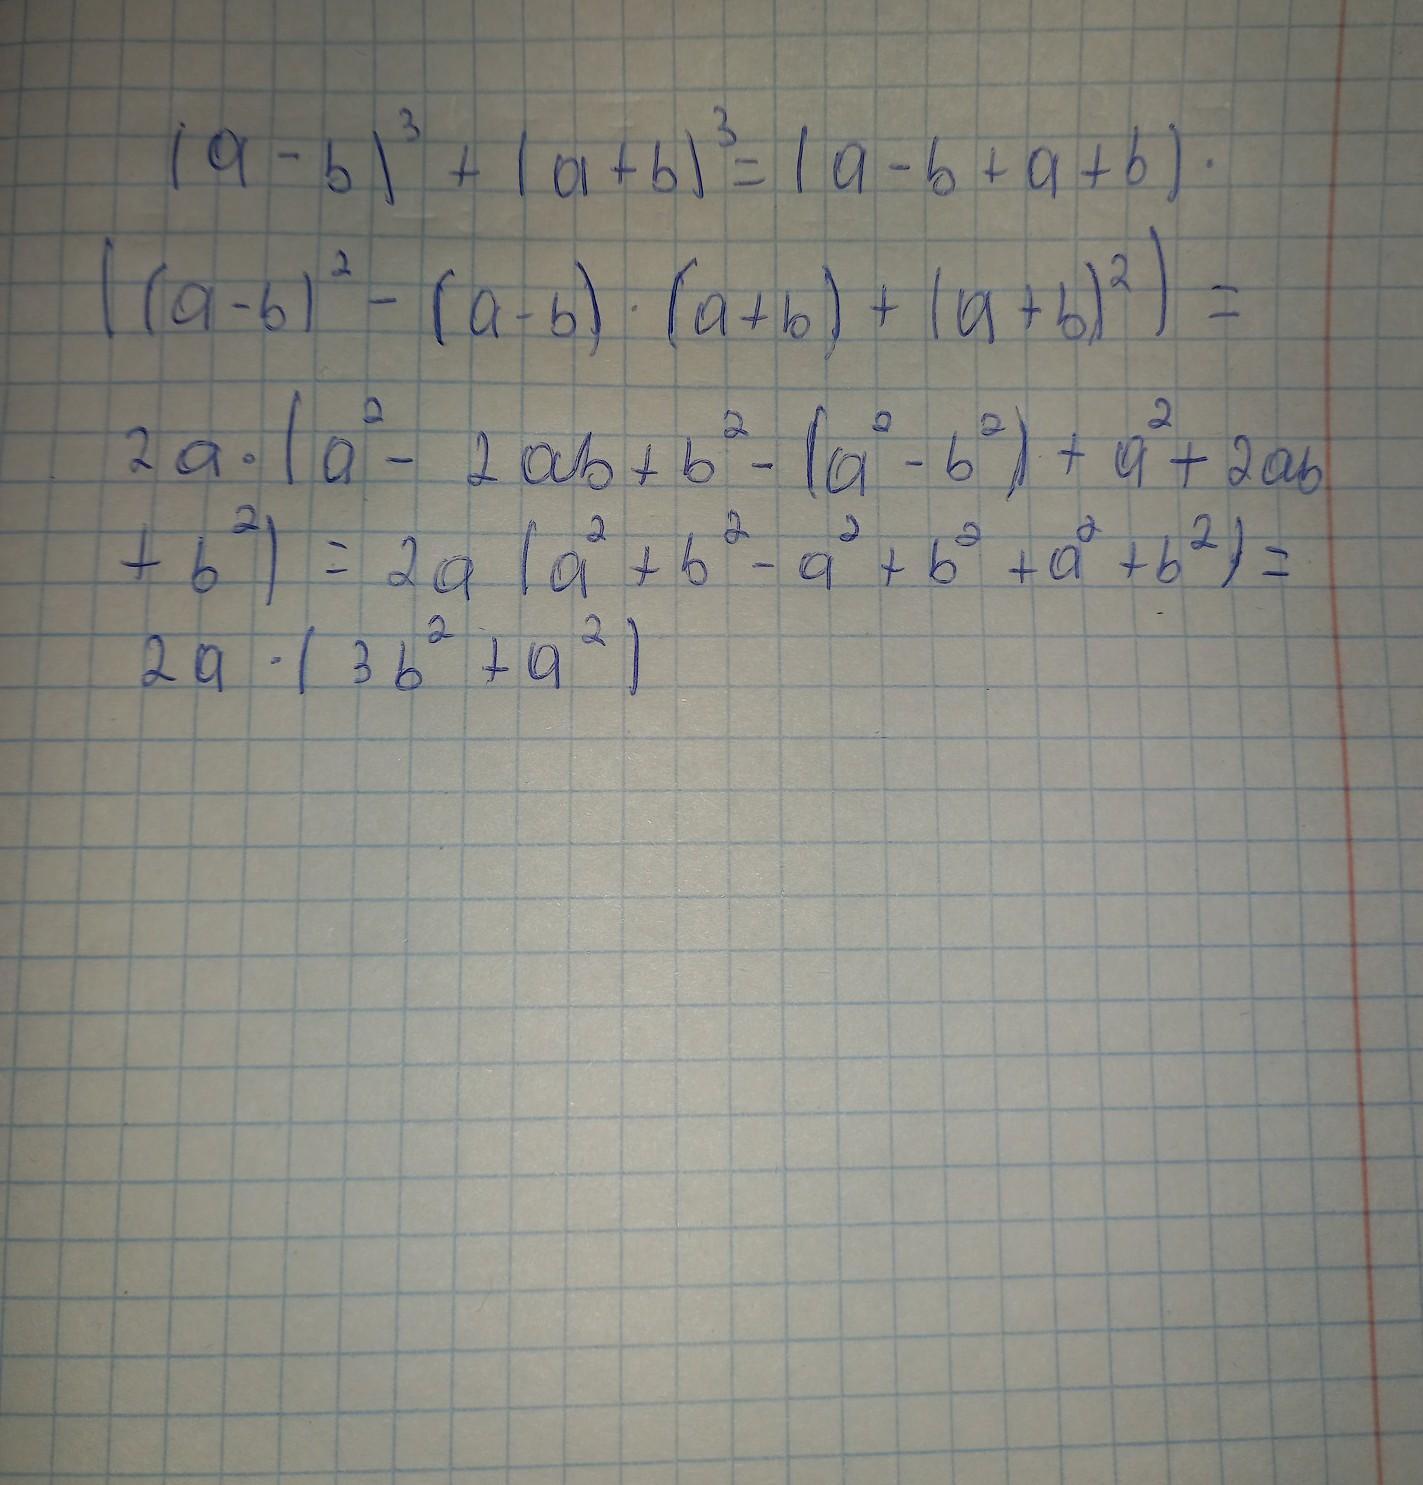 (a - b)³ + (a + b)³ = (a - b + a + b) ·
((a - b)² - (a - b) · (a + b) + (a + b)²) =
2a · (a² - 2ab + b² - (a² - b²) + a² + 2ab
+ b²) = 2a (a² + b² - a² + b² + a² + b²) =
2a · (3b² + a²)